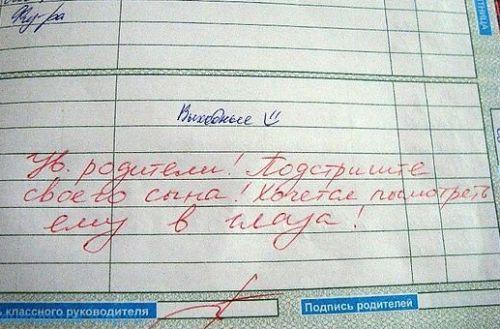 Фиг-ра
ТНИЦА
Выходные
Ув. родители! Подстригите
своего сына! Хочется посмотреть
ему в глаза!
ь классного руководителя
Подпись родителей